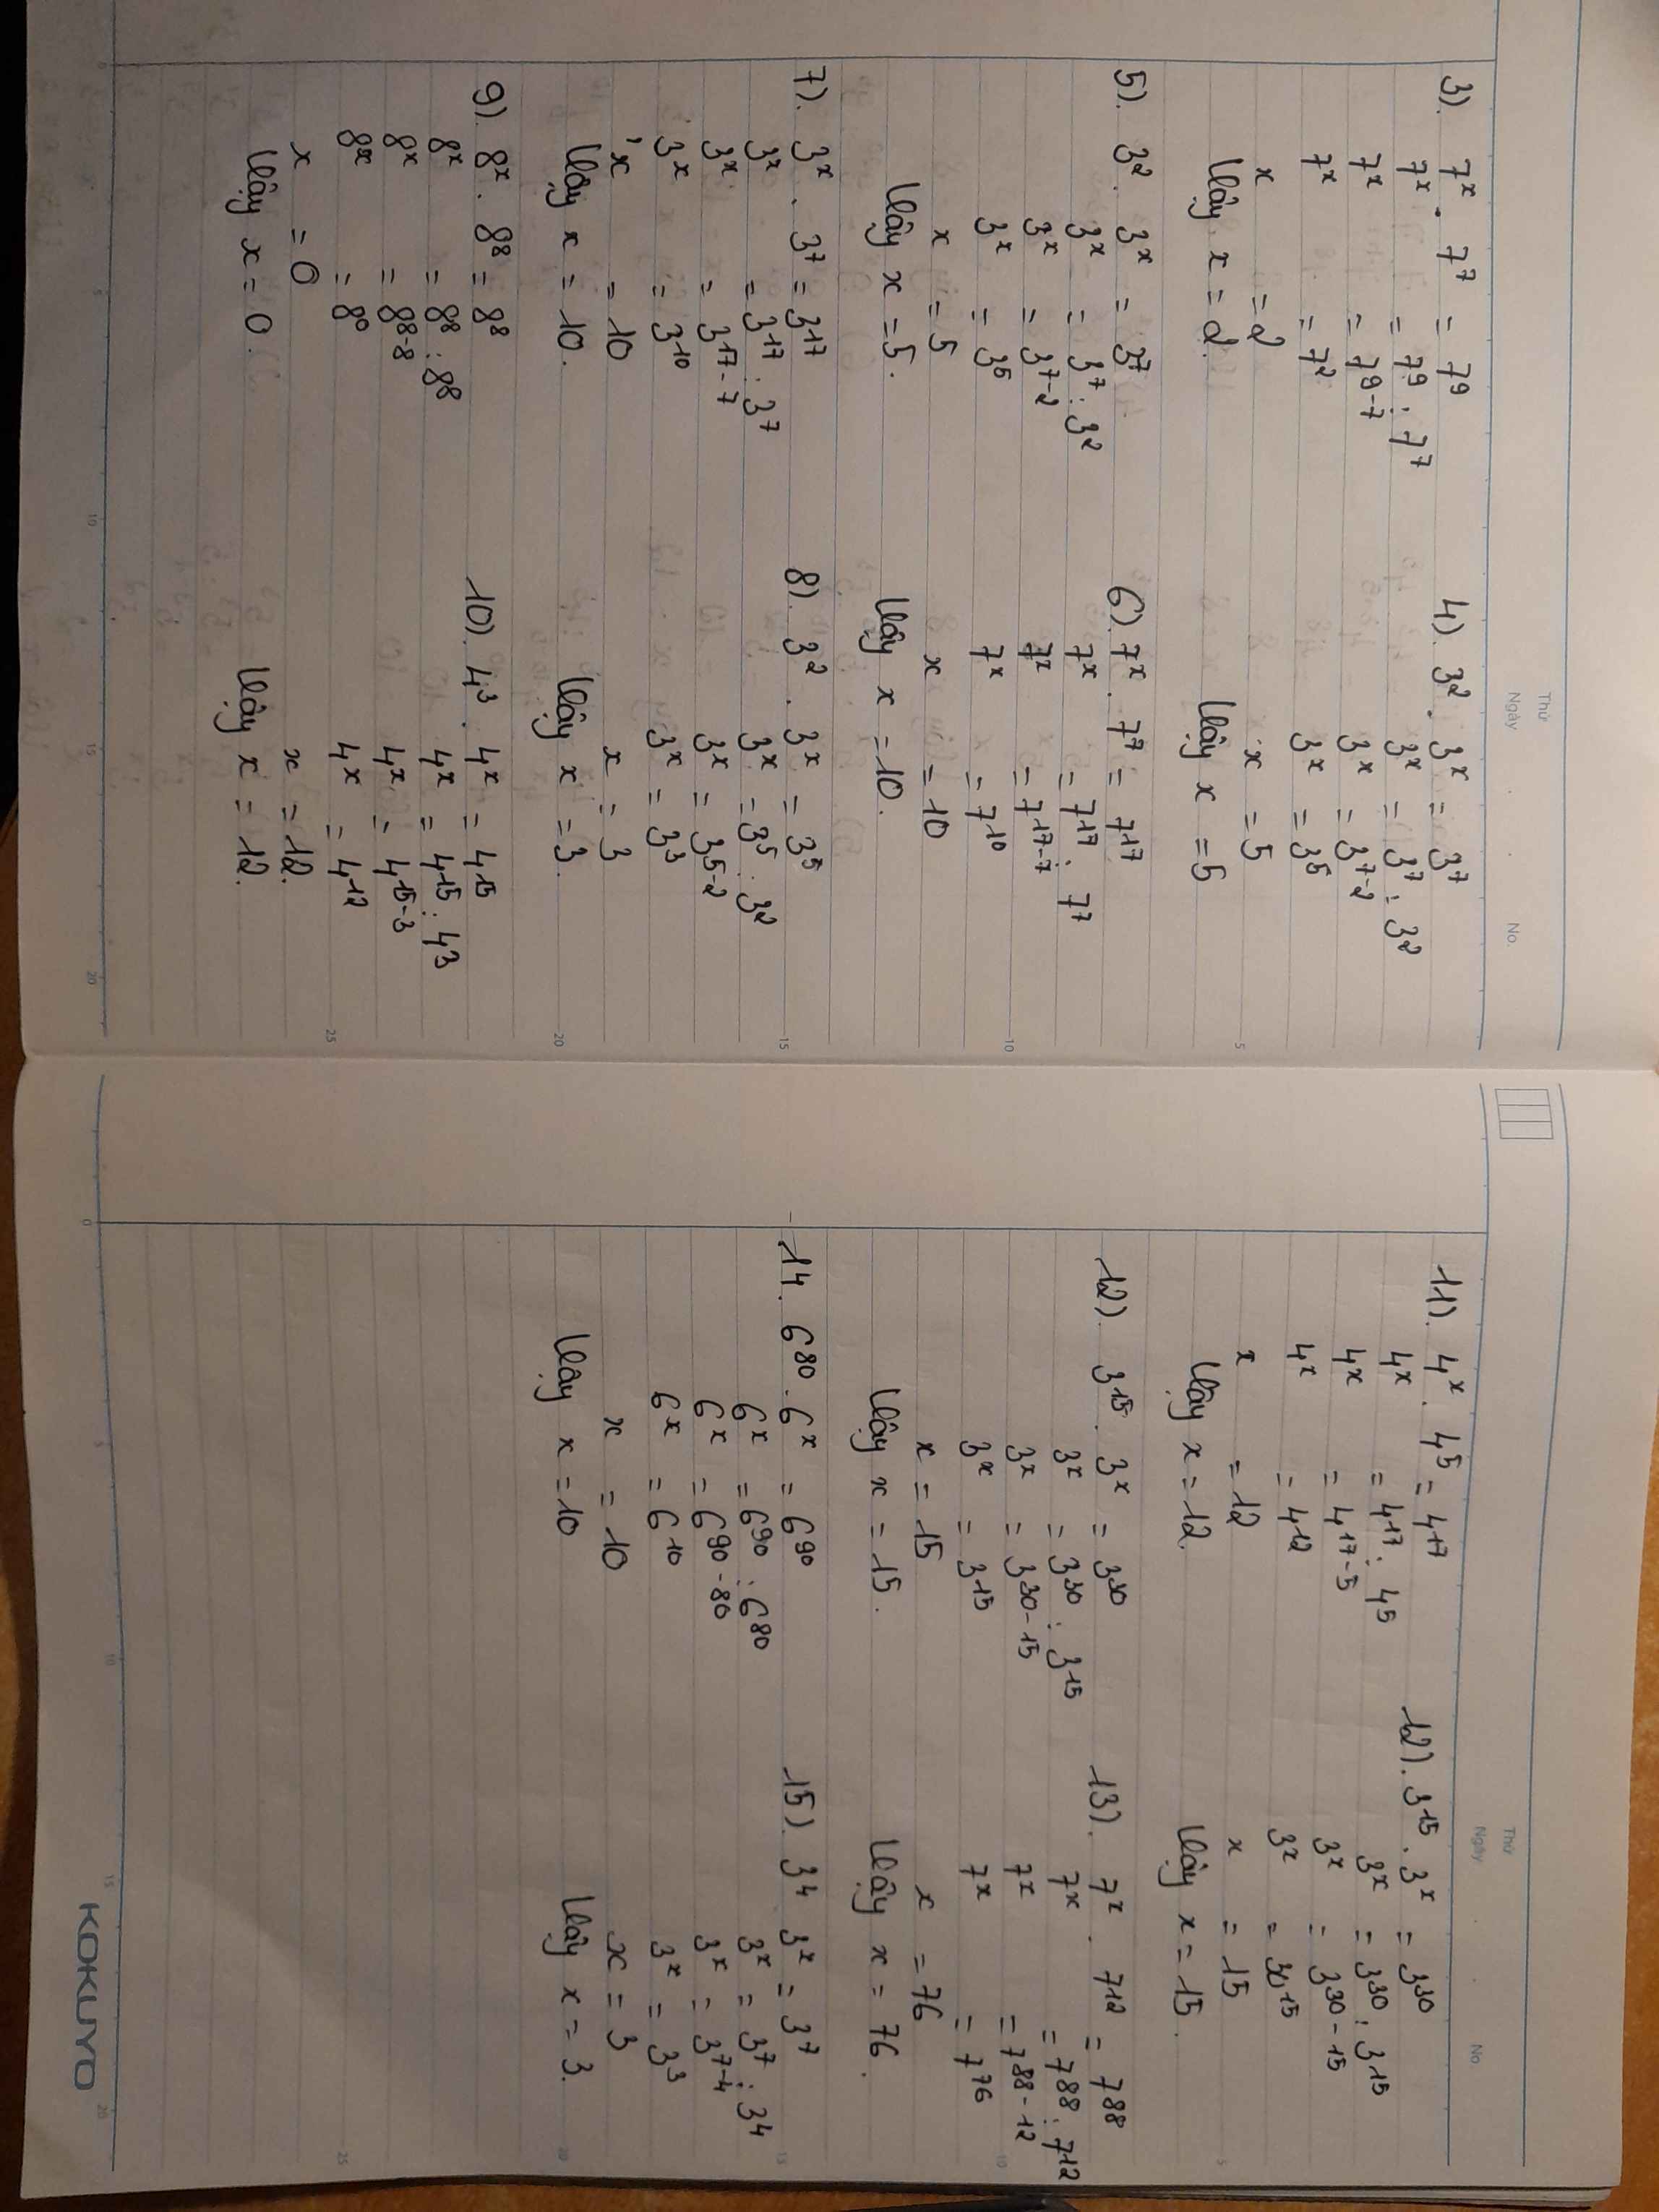 Thứ
Ngày
No.
3). 7ˣ . 7⁷ = 7⁹
7ˣ = 7⁹ : 7⁷
7ˣ = 7⁹⁻⁷
7ˣ = 7²
x = 2
Vậy x = 2.
4) 3² . 3ˣ = 3⁷
3ˣ = 3⁷ : 3²
3ˣ = 3⁷⁻²
3ˣ = 3⁵
x = 5
Vậy x = 5
5). 3² . 3ˣ = 3⁷
3ˣ = 3⁷ : 3²
3ˣ = 3⁷⁻²
3ˣ = 3⁵
x = 5
Vậy x = 5.
6). 7ˣ . 7⁷ = 7¹⁷
7ˣ = 7¹⁷ : 7⁷
7ˣ = 7¹⁷⁻⁷
7ˣ = 7¹⁰
x = 10
Vậy x = 10.
7). 3ˣ . 3⁷ = 3¹⁷
3ˣ = 3¹⁷ : 3⁷
3ˣ = 3¹⁷⁻⁷
3ˣ = 3¹⁰
x = 10
Vậy x = 10.
8). 3² . 3ˣ = 3⁵
3ˣ = 3⁵ : 3²
3ˣ = 3⁵⁻²
3ˣ = 3³
x = 3
Vậy x = 3.
9). 8ˣ . 8⁸ = 8⁸
8ˣ = 8⁸ : 8⁸
8ˣ = 8⁸⁻⁸
8ˣ = 8⁰
x = 0
Vậy x = 0.
10). 4³ . 4ˣ = 4¹⁵
4ˣ = 4¹⁵ : 4³
4ˣ = 4¹⁵⁻³
4ˣ = 4¹²
x = 12.
Vậy x = 12.
Thứ
Ngày
No.
11). 4ˣ . 4⁵ = 4¹⁷
4ˣ = 4¹⁷ : 4⁵
4ˣ = 4¹⁷⁻⁵
4ˣ = 4¹²
x = 12
Vậy x = 12.
12). 3¹⁵ . 3ˣ = 3³⁰
3ˣ = 3³⁰ : 3¹⁵
3ˣ = 3³⁰⁻¹⁵
3ˣ = 3¹⁵
x = 15
Vậy x = 15.
12). 3¹⁵ . 3ˣ = 3³⁰
3ˣ = 3³⁰ : 3¹⁵
3ˣ = 3³⁰⁻¹⁵
3ˣ = 3¹⁵
x = 15
Vậy x = 15.
13). 7ˣ . 7¹² = 7⁸⁸
7ˣ = 7⁸⁸ : 7¹²
7ˣ = 7⁸⁸⁻¹²
7ˣ = 7⁷⁶
x = 76
Vậy x = 76.
14. 6⁸⁰ . 6ˣ = 6⁹⁰
6ˣ = 6⁹⁰ : 6⁸⁰
6ˣ = 6⁹⁰⁻⁸⁰
6ˣ = 6¹⁰
x = 10
Vậy x = 10
15) 3⁴ 3ˣ = 3⁷
3ˣ = 3⁷ : 3⁴
3ˣ = 3⁷⁻⁴
3ˣ = 3³
x = 3
Vậy x = 3.
KOKUYO